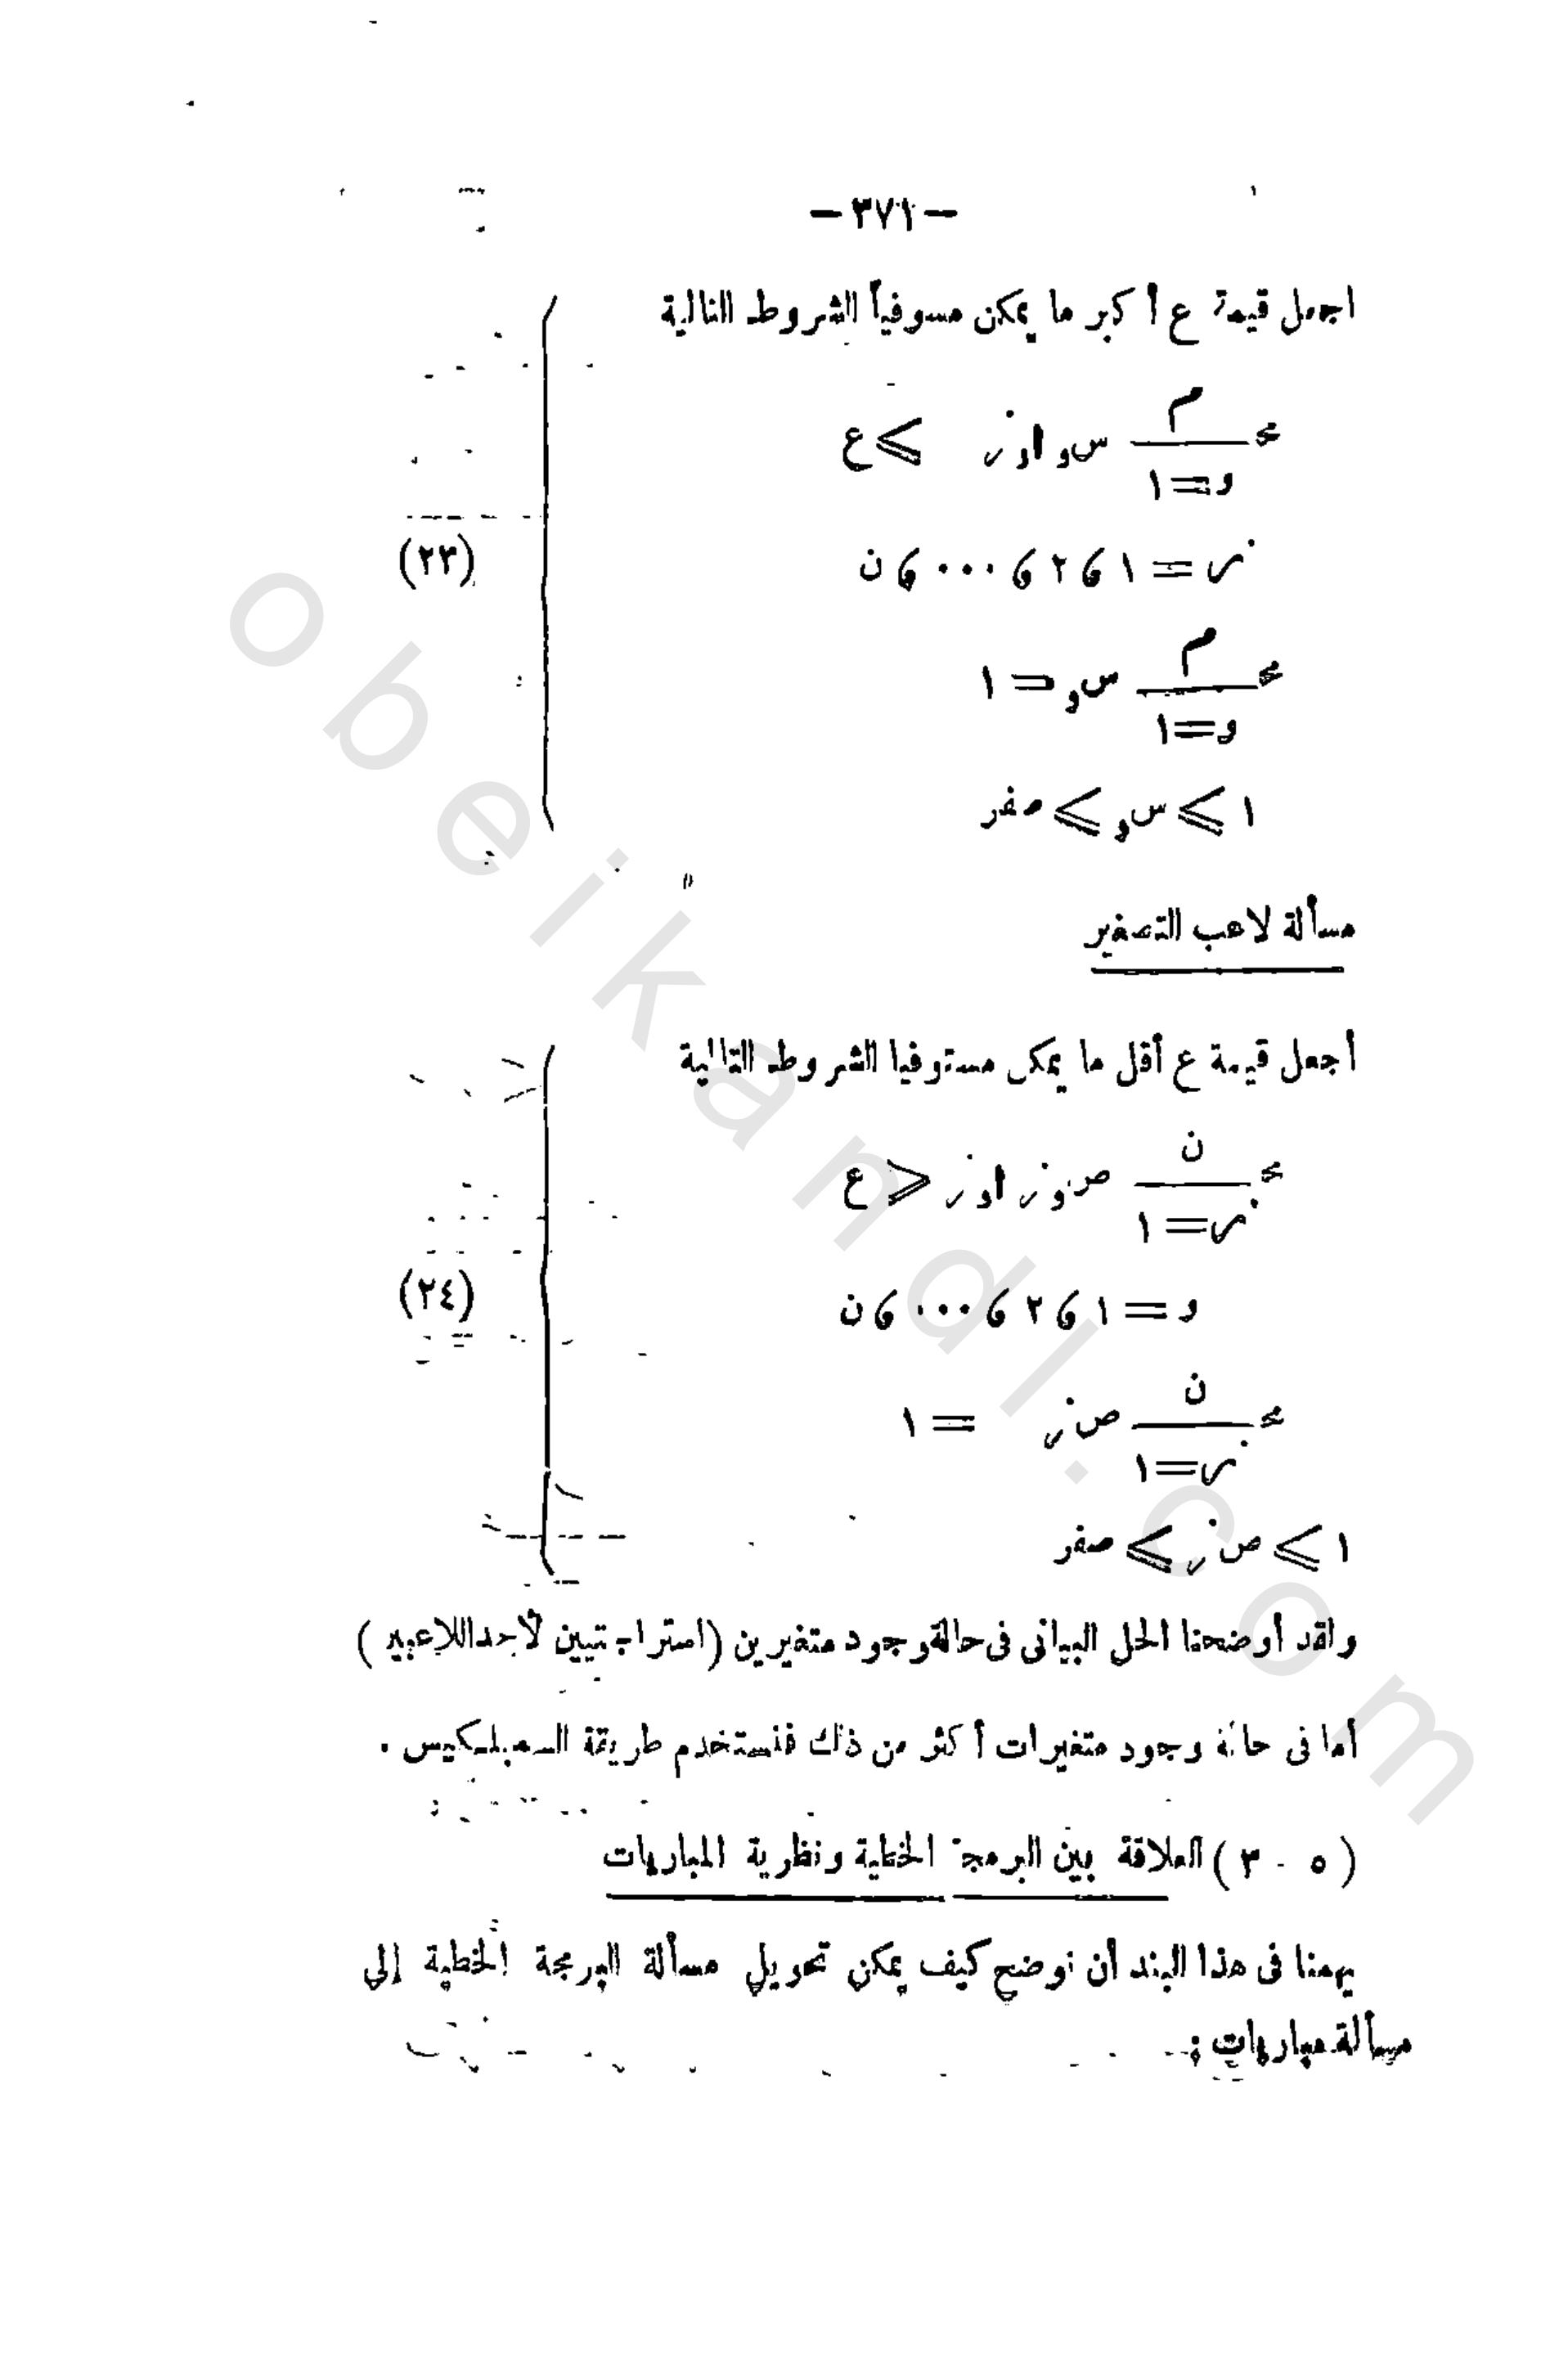 — ٣٧١ —
اجعل قيمة ع أكبر ما يمكن مسوفياً الشروط التالية
م
محـ س و ا و ز ⩾ ع
و = ١
ز = ١ ، ٢ ، ... ، ن
(٢٣)
م
محـ س و = ١
و = ١
١ ⩾ س و ⩾ صفر
مسألة لاعب التصغير
أجعل قيمة ع أقل ما يمكن مستوفيا الشروط التالية
ن
محـ ص و ز ا و ز ⩽ ع
ز = ١
و = ١ ، ٢ ، ... ، ن
(٢٤)
ن
محـ ص ز = ١
ز = ١
١ ⩾ ص ز ⩾ صفر
ولقد أوضحنا الحل البياني في حالة وجود متغيرين (استراتيجيتين لأحد اللاعبين)
أما في حالة وجود متغيرات أكثر من ذلك فنستخدم طريقة السمبلكس .
( ٥ - ٣ ) العلاقة بين البرمجة الخطية ونظرية المباريات
يهمنا في هذا البند أن نوضح كيف يمكن تحويل مسألة البرمجة الخطية إلى
مسألة مباريات :
obeikandl.com